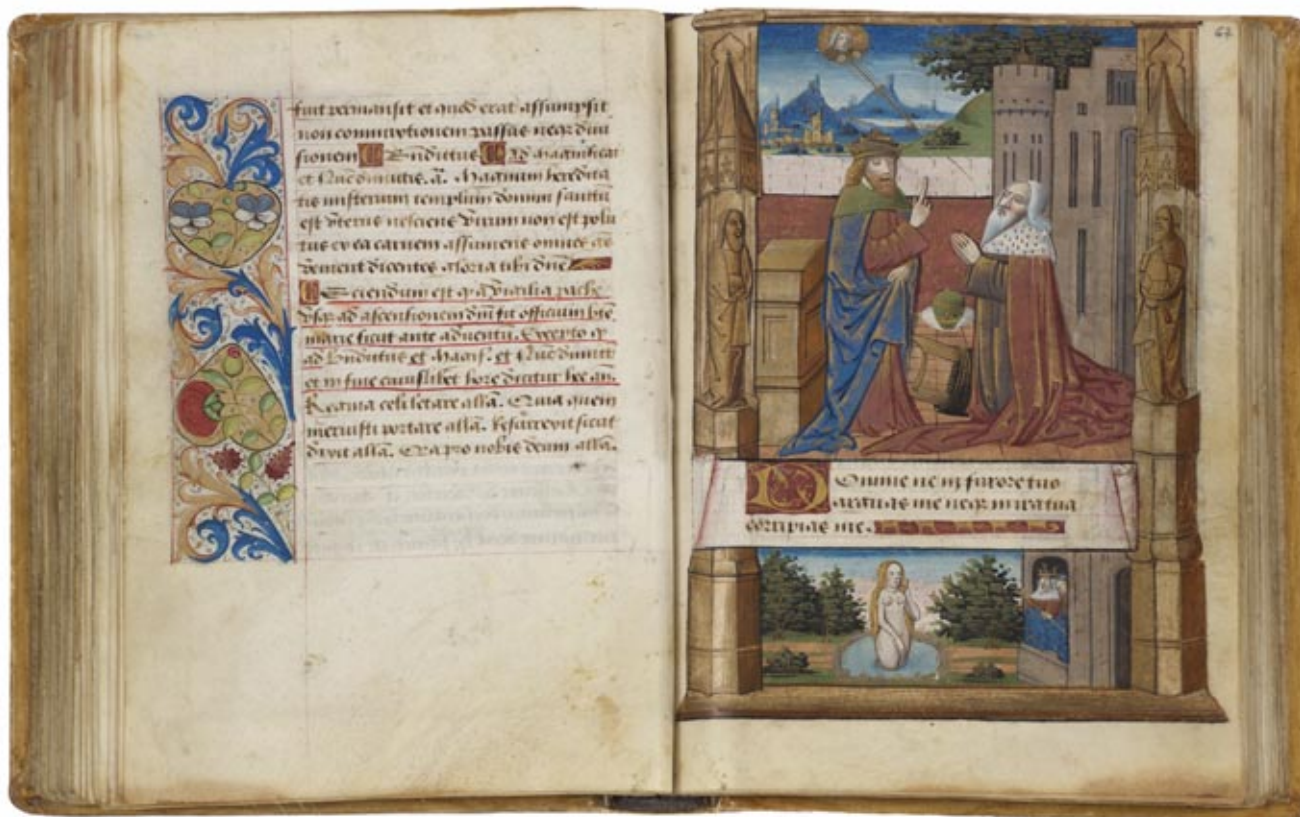 fuit permansit et quod erat assumpsit
non commixtionem passus neqz divi
sionem Benedictus Ad magnificat
et Nunc dimittis. a. Magnum heredita
tis misterium templum domini factum
est uterus nesciens virum non est pollu
tus ex ea carnem assumens omnes ge
dicentes gloria tibi dne
Sciendum est q a vigilia pasche
usqz ad ascentionem dni fit officium bte
marie sicut ante adventu. Excepto q
ad bndictus et Magif. et Nuc dimitt
et in fine cuiuslibet hore dicitur hec an.
Regina celi letare alla. Quia quem
meruisti portare alla. Resurrexit sicut
dixit alla. Ora pro nobis deum alla.
67
Domine ne in furore tuo
arguas me neqz in ira tua
corripias me.